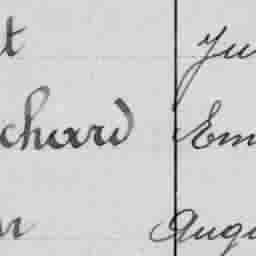 t Ju
chard Em
n Augu